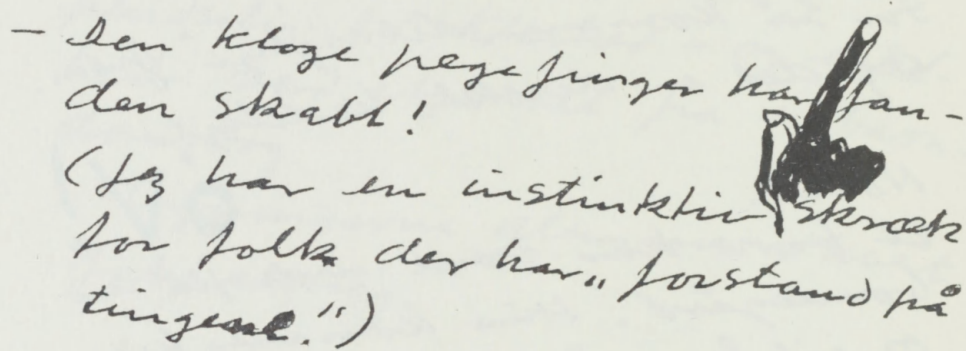 - Den kloge pegefinger har fan-
den skabt!
(Jeg har en instinktiv skræk
for folk der har „forstand på
tingene.")